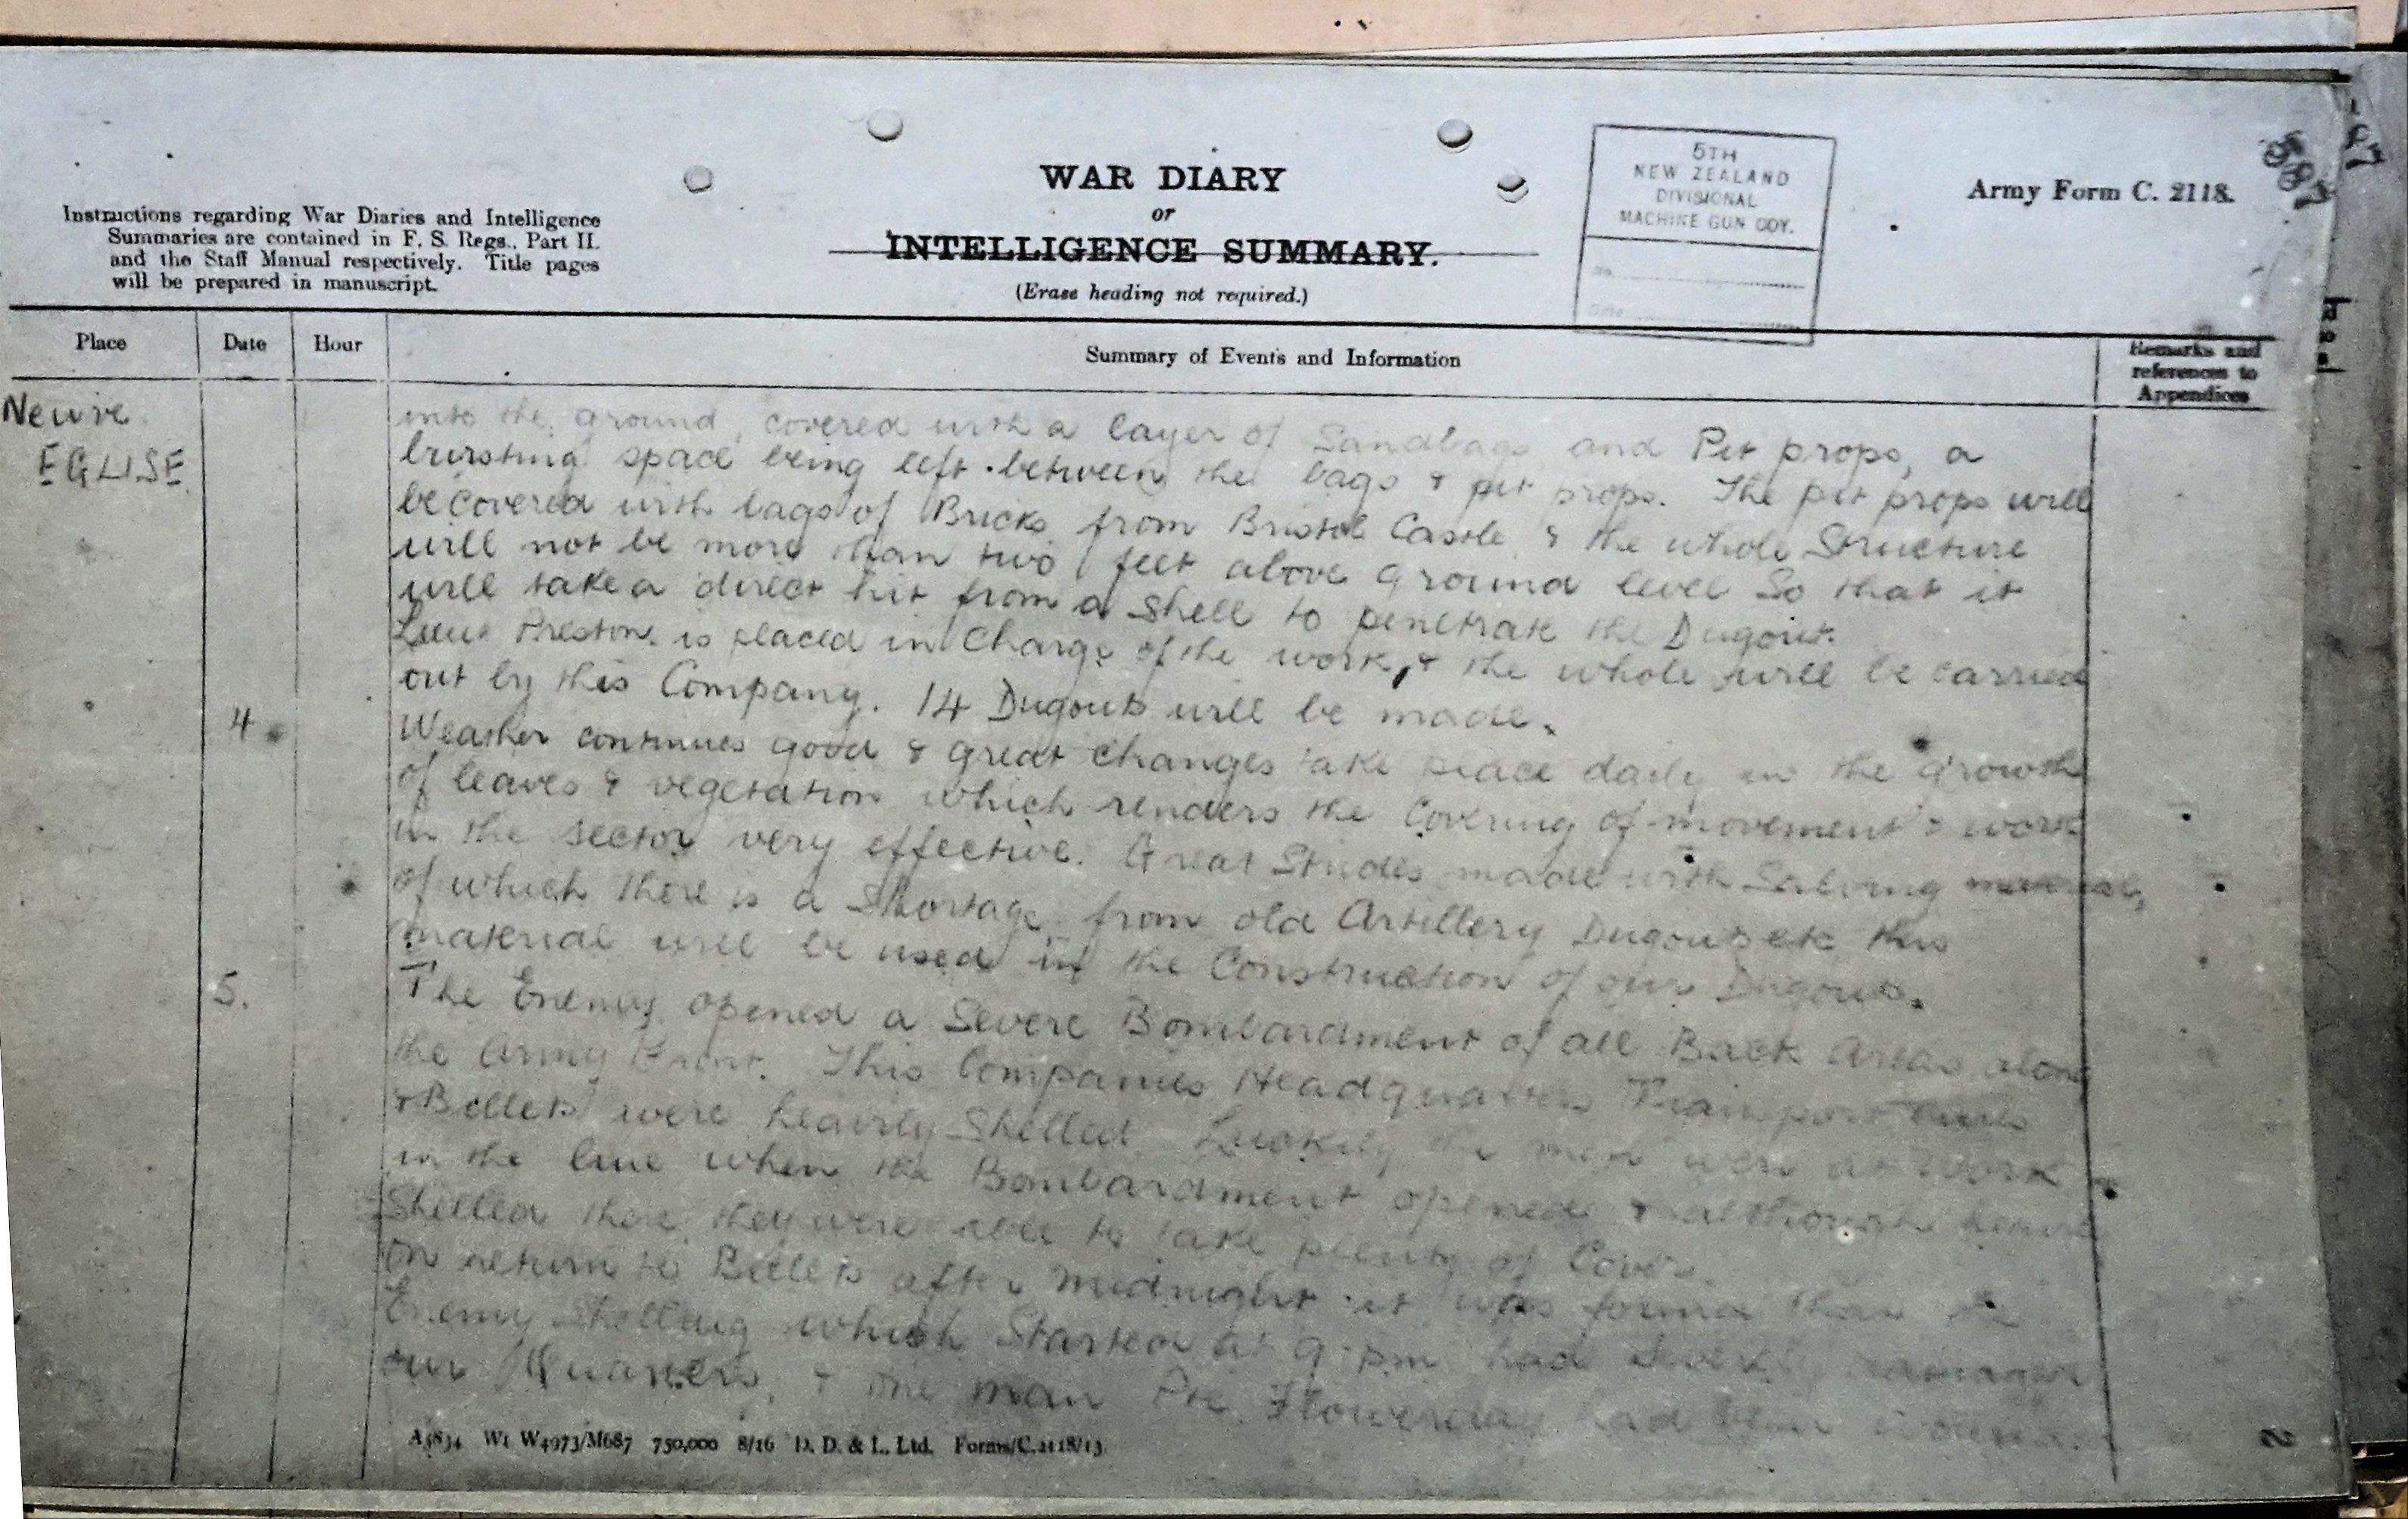 WAR DIARY
or
INTELLIGENCE SUMMARY.
(Erase heading not required.)
Instructions regarding War Diaries and Intelligence
Summaries are contained in F. S. Regs., Part II.
and the Staff Manual respectively. Title pages
will be prepared in manuscript.
5TH
NEW ZEALAND
DIVISIONAL
MACHINE GUN COY.
No.
Date
Army Form C. 2118.
Place
Date
Hour
Summary of Events and Information
Remarks and
references to
Appendices
Neuve
EGLISE
into the ground, covered with a layer of Sandbags and Pit props, a
bursting space being left between the bags & pit props. The pit props will
be covered with bags of Bricks from Bristol Castle, & the whole Structure
will not be more than two feet above ground level So that it
will take a direct hit from a shell to penetrate the Dugout.
Lieut Preston is placed in Charge of the work, & the whole will be carried
out by this Company. 14 Dugouts will be made.
4.
Weather continues good & great changes take place daily in the growth
of leaves & vegetation which renders the Covering of movement & work
in the sector very effective. Great Strides made with Salving material,
of which there is a Shortage from old Artillery Dugouts etc, this
material will be used in the Construction of our Dugouts.
5.
The Enemy opened a Severe Bombardment of all Back Areas along
the Army Front. This Companies Headquarters Transport Lines
& Billets were heavily Shelled. Luckily the men were at work
in the line when the Bombardment opened & although
Shelled there they were able to take plenty of Cover.
On return to Billets after midnight it was found that the
Enemy Shelling which Started at 9 pm had damaged
our Quarters, & one man Pte. Flowerday had been
A5834 Wt W4973/M687 750,000 8/16 D. D. & L. Ltd. Forms/C.2118/13.
2